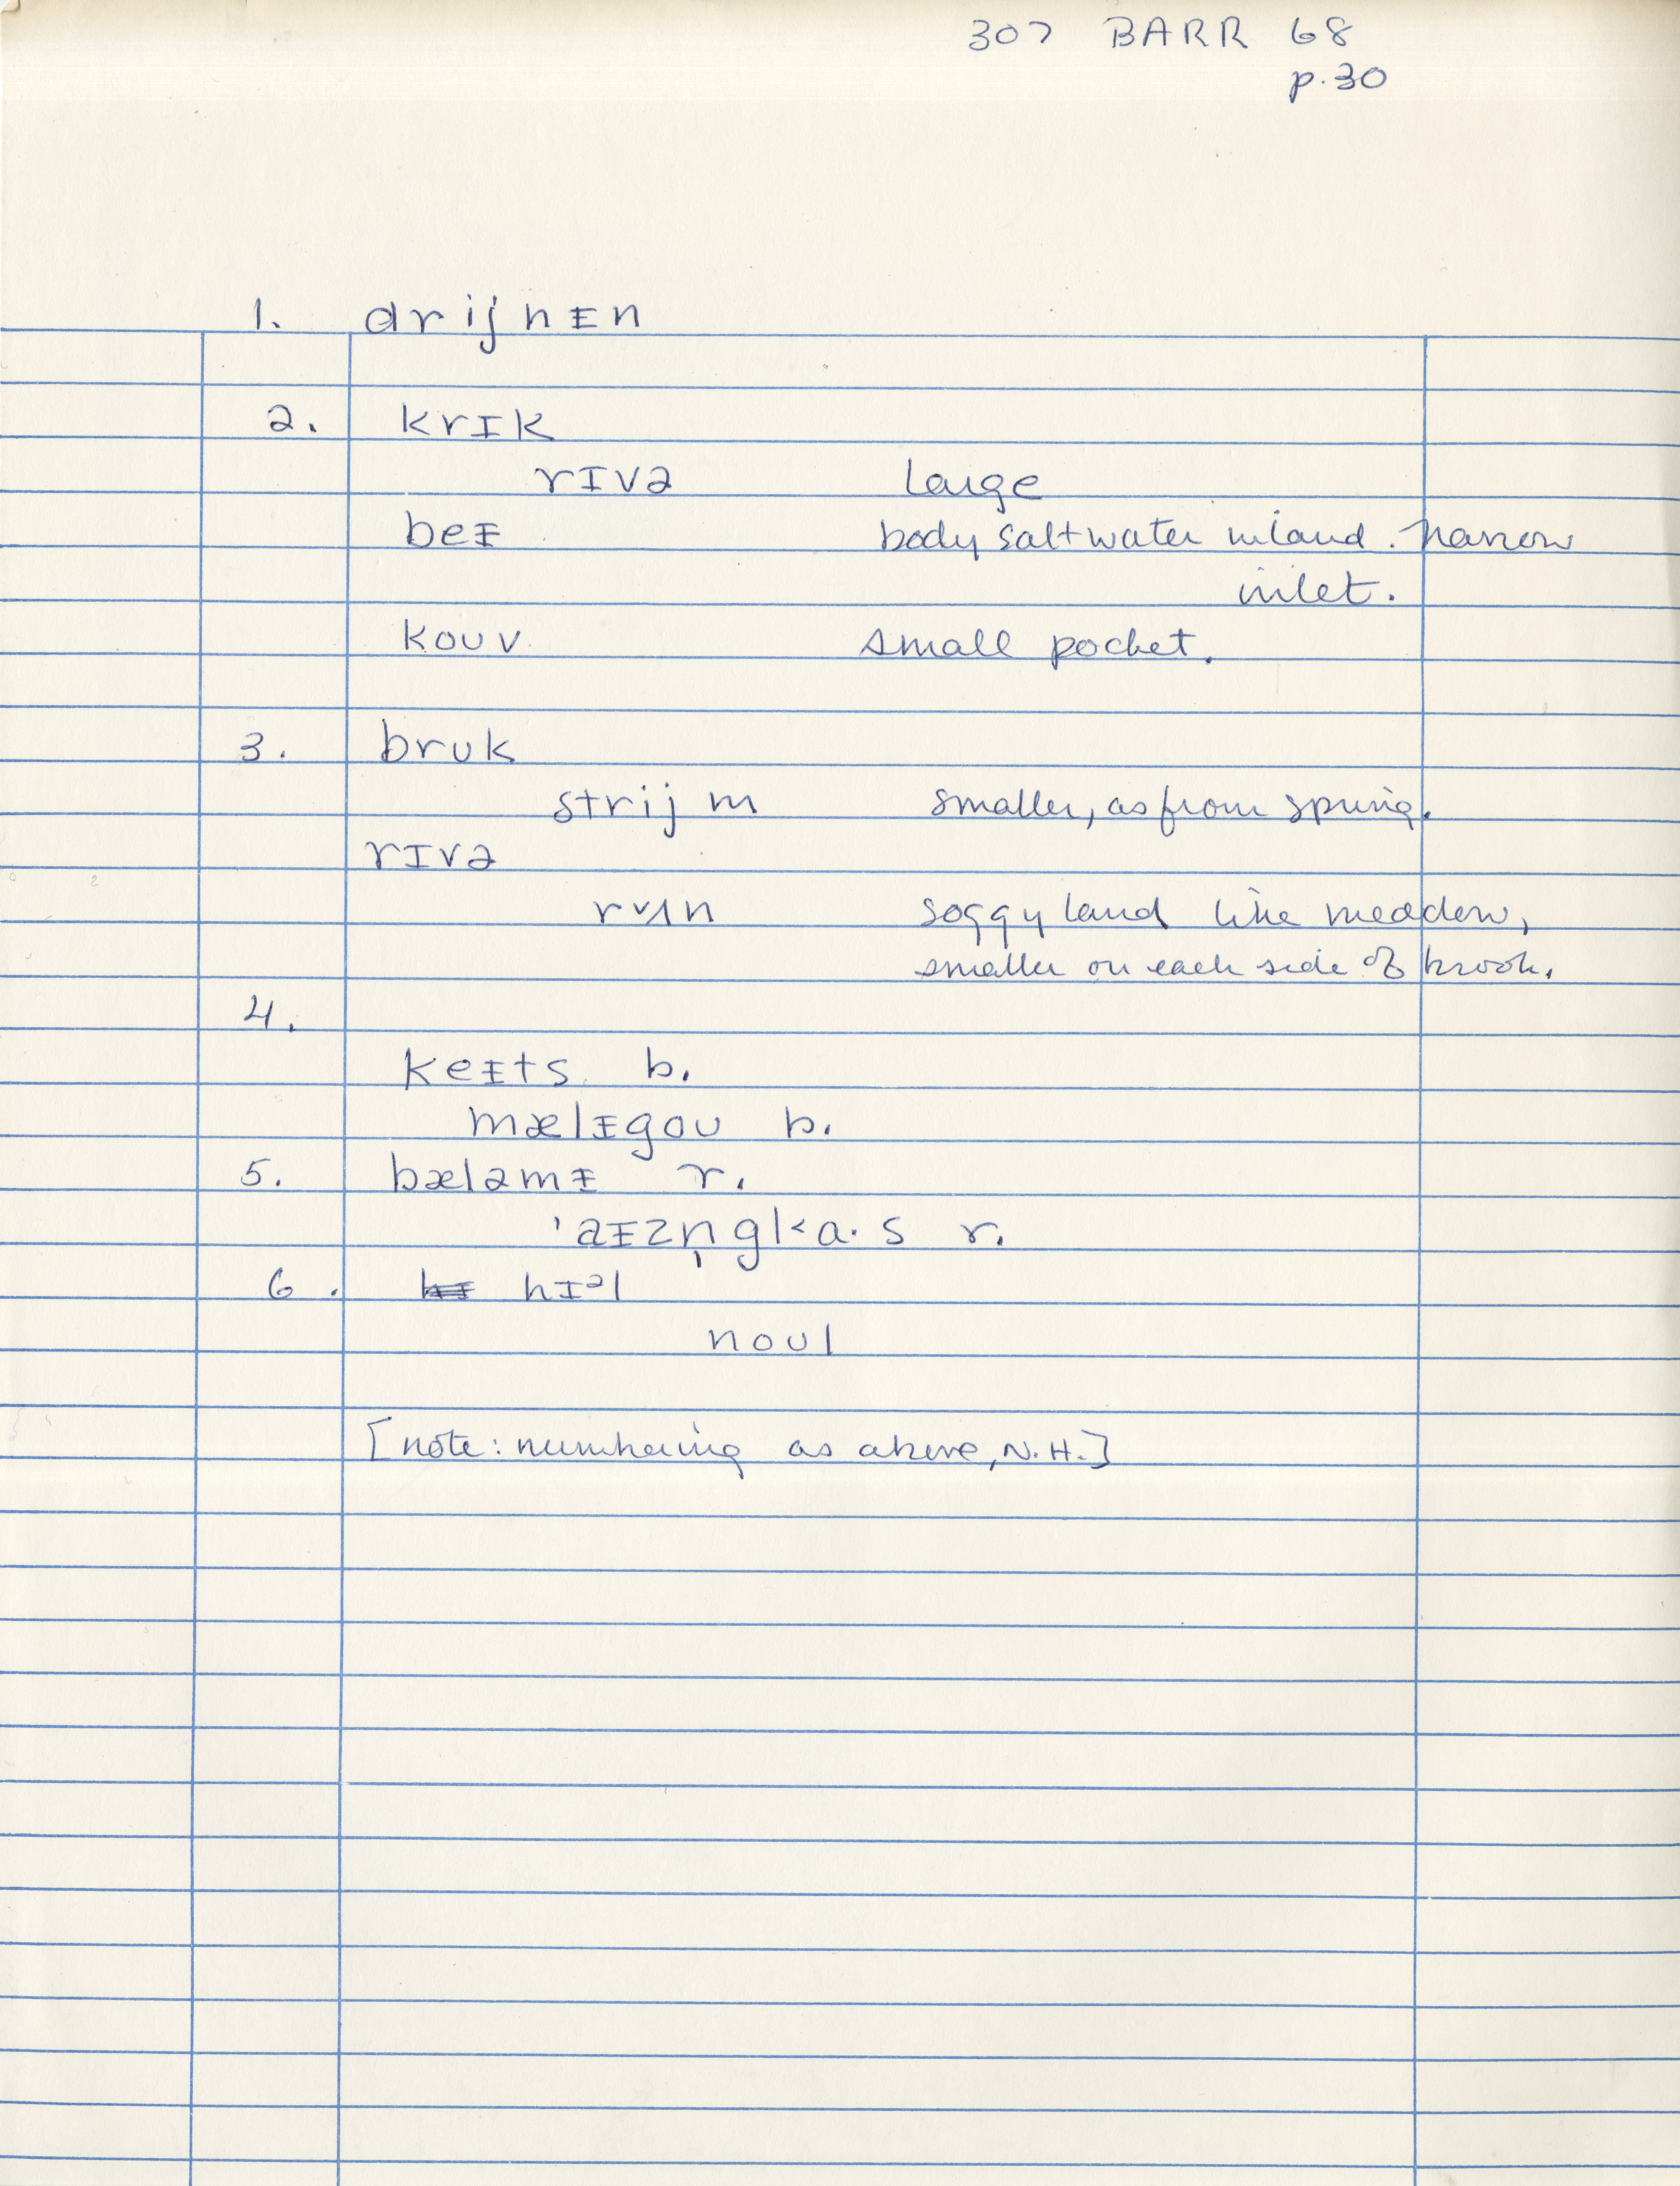 307 BARR 68
p.30
1. drijnᵻn
2. krɪk
rɪvə large
beᵻ body saltwater inland. Narrow
inlet.
kouv small pocket.
3. bruk
strijm smaller, as from spring.
rɪvə
rʌn soggy land like meadow,
smaller on each side of brook.
4.
keᵻts b.
mælᵻgou b.
5. bæləmᵻ r.
'aᵻzn̩gla·s r.
6. hɪᵊl
noul
[note: numbering as above, N.H.]